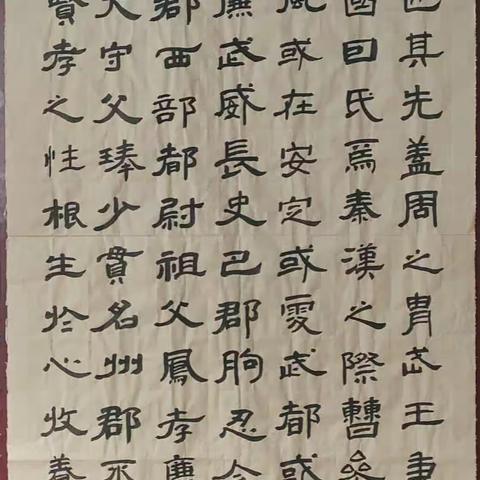 也其先蓋周之胄武王秉
國因氏焉秦漢之際曹參
風或在安定或處武都或
廉武威長史巴郡朐忍令
郡西部都尉祖父鳳孝廉
大守父琫少貫名州郡不
賢孝之性根生於心收養